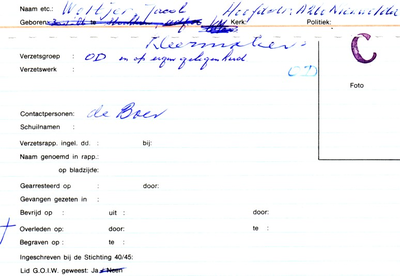 Naam etc.: Woltjer, Joost
Geboren: te Kerk: Politiek:
Kleermaker
Verzetsgroep : OD en op eigen gelegenheid
Verzetswerk OD
C
Foto
Contactpersonen: de Boer
Schuilnamen :
Verzetsrapp. ingel. dd. : bij:
Naam genoemd in rapp.:
op bladzijde:
Gearresteerd op : door:
Gevangen gezeten in :
Bevrijd op : uit : door:
Overleden op: door: te :
Begraven op : te :
Ingeschreven bij de Stichting 40/45:
Lid G.O.I.W. geweest: Ja / Neen